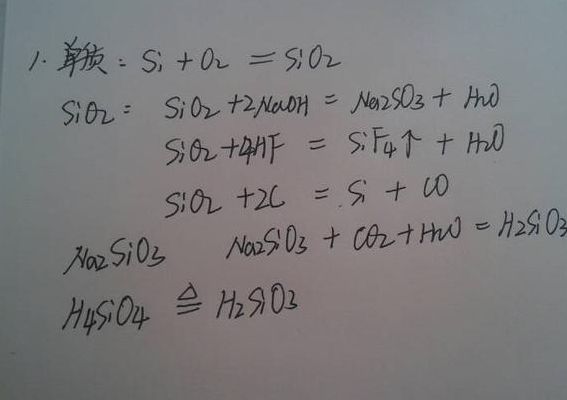 1. 单质: Si + O2 = SiO2
SiO2: SiO2 + 2NaOH = Na2SO3 + H2O
SiO2 + 4HF = SiF4↑ + H2O
SiO2 + 2C = Si + CO
Na2SiO3 Na2SiO3 + CO2 + H2O = H2SiO3
H4SiO4 ≜ H2SiO3